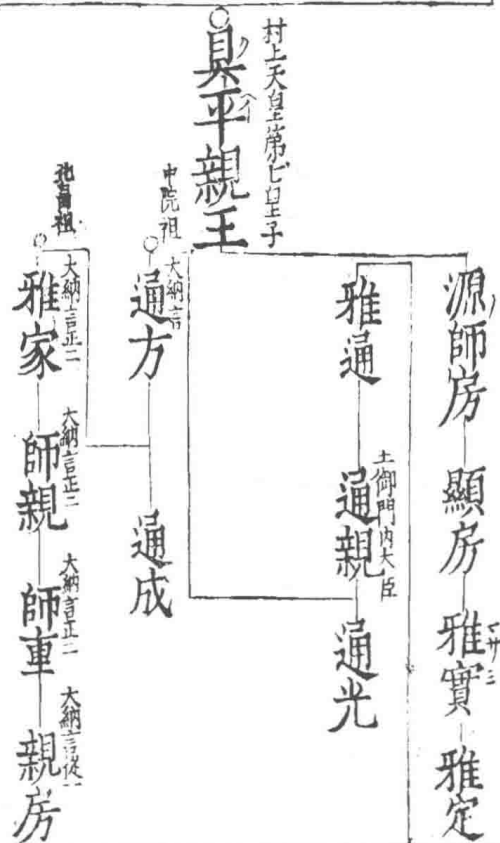 村上天皇第七皇子
具平親王
源師房
顯房
雅實
マサミ
雅定
雅通
土御門内大臣
通親
通光
中院祖
大納言
通方
通成
北畠祖
大納言正二
雅家
大納言正二
師親
大納言正二
師車
大納言從一
親房